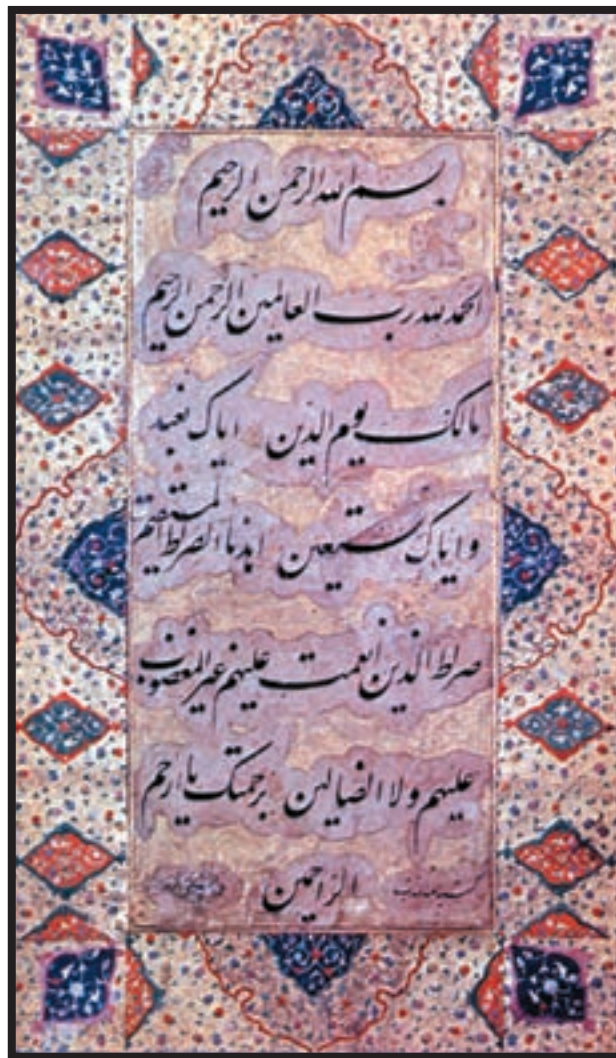 بسم الله الرحمن الرحيم
الحمد لله رب العالمين الرحمن الرحيم
مالك يوم الدين اياك نعبد
و اياك نستعين اهدنا الصراط المستقيم
صراط الذين انعمت عليهم غير المغضوب
عليهم ولا الضالين برحمتك يا ارحم
الراحمين